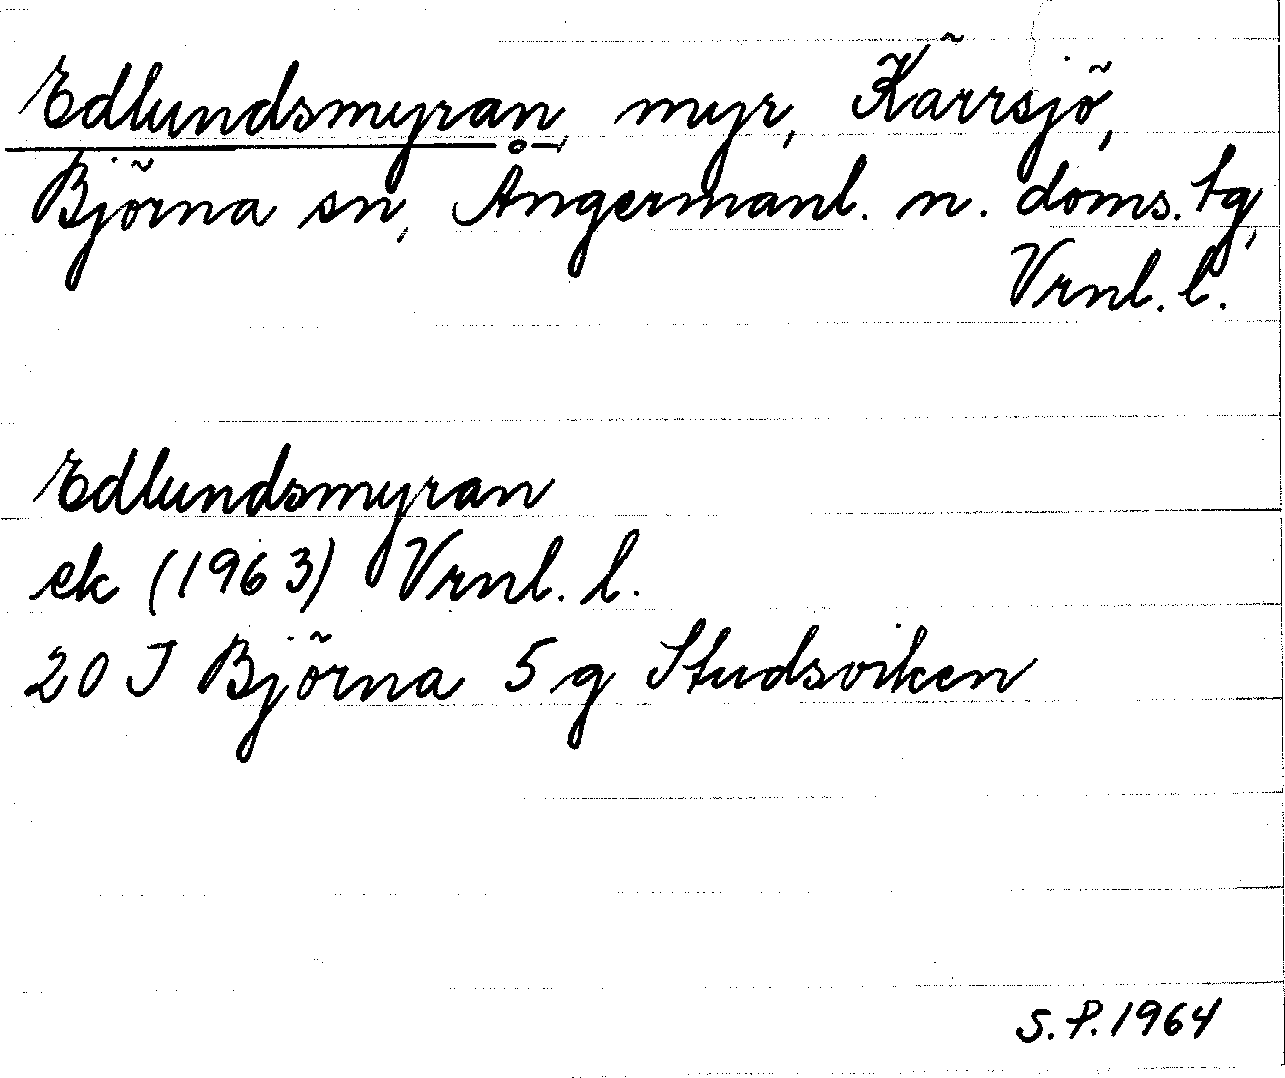 Edlundsmyran, myr, Kärrsjö,
Björna sn, Ångermanl. n. doms. tg,
Vrnl. l.
Edlundsmyran
ek (1963) Vrnl. l.
20 J Björna 5 g Studsviken
S.P. 1964